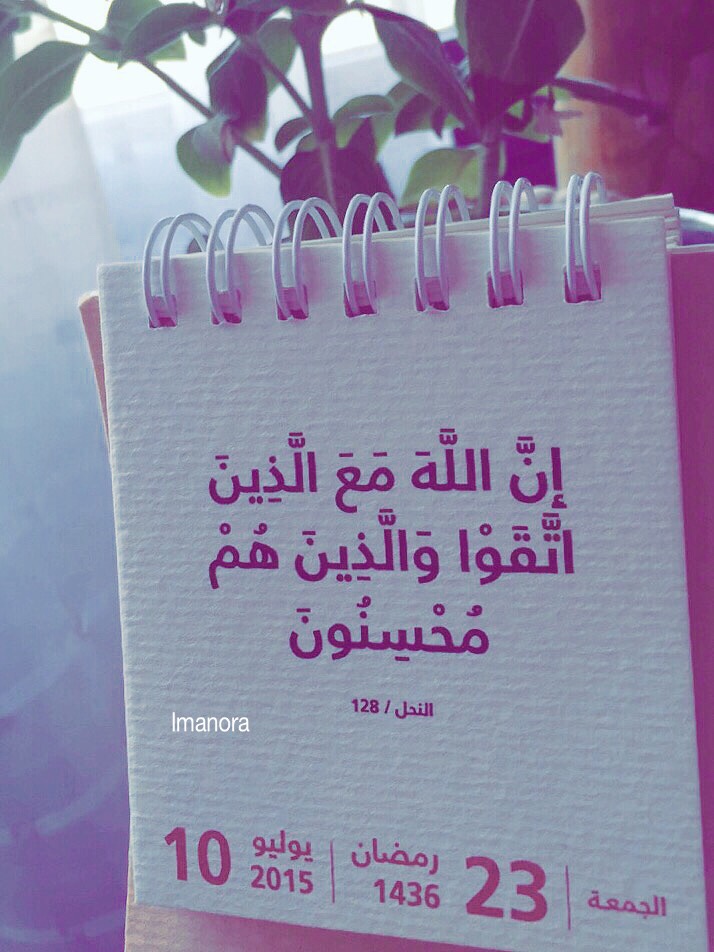 إِنَّ اللَّهَ مَعَ الَّذِينَ
اتَّقَوْا وَالَّذِينَ هُمْ
مُحْسِنُونَ
النحل / 128
Imanora
الجمعة | 23 رمضان 1436 | 10 يوليو 2015